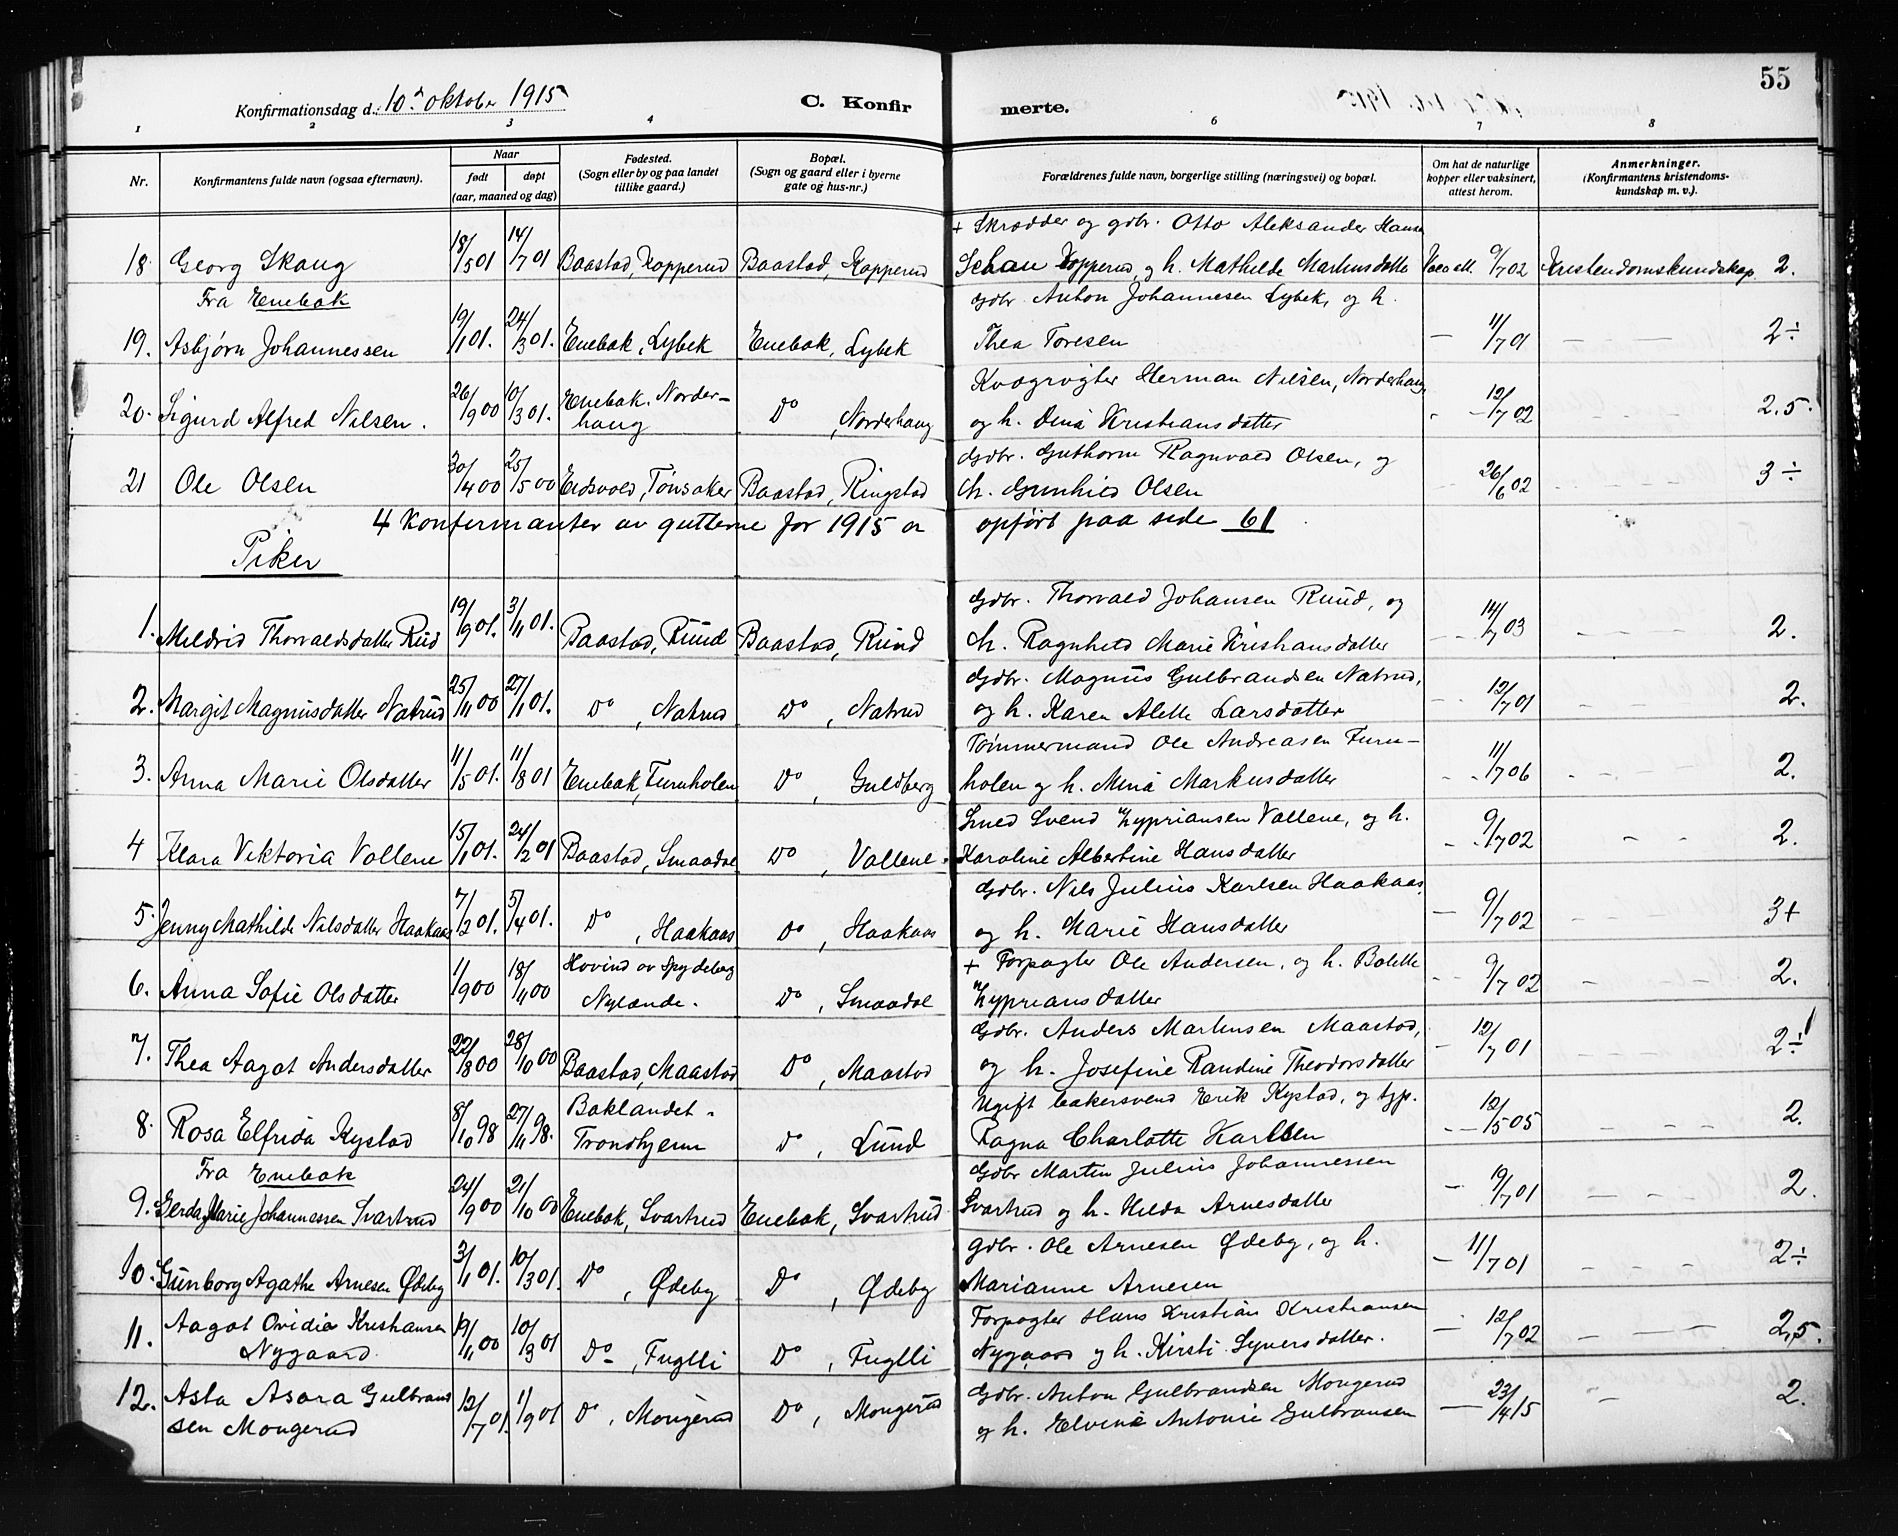 55
Konfirmationsdag d. 10de oktober 1915
C. Konfirmerte.
1 2 3 4 6 7 8
Nr.
Konfirmantens fulde navn (ogsaa efternavn).
Naar
født døpt
(aar, maaned og dag)
Fødested.
(Sogn eller by og paa landet
tillike gaard.)
Bopæl.
(Sogn og gaard eller i byerne
gate og hus-nr.)
Forældrenes fulde navn, borgerlige stilling (næringsvei) og bopæl.
Om hat de naturlige
kopper eller vaksinert,
attest herom.
Anmerkninger.
(Konfirmantens kristendoms-
kundskap m. v.).
+ Skrædder og gdbr. Otto Aleksander Hansen
18. Georg Skaug 18/5 01 14/7 01 Baastad, Kopperud Baastad, Kopperud Kopperud, og h. Mathilde Markusdatter 9/7 02 Kristendomskundskap 2.
Fra Enebak
gdbr. Anton Johannesen Lybek, og h.
19. Asbjørn Johannessen 19/1 01. 24/3 01. Enebak, Lybek Enebak, Lybek Thea Toresen — 11/7 01 — — 2÷
Kvægrøgter Herman Nilsen, Norderhaug
20. Sigurd Alfred Nilsen. 26/9 00 10/3 01. Enebak. Norder-
haug Do, Norderhaug og h. Dina Kristiansdatter 12/7 02 2.5.
Gdbr. Guthorm Ragnvald Olsen, og
21 Ole Olsen 30/4 00 25/5 00 Eidsvold, Tønsaker Baastad, Ringstad h. Gunhild Olsen 26/6 02 3÷
4 Konfirmanter av gutterne for 1915 er opført paa side 61
Piker
Gdbr. Thorvald Johansen Ruud, og
1. Mildrid Thorvaldsdatter Ruud 19/9 01. 3/11 01. Baastad, Ruud Baastad, Ruud h. Ragnhild Marie Kristiansdatter 14/7 03 2.
Gdbr. Magnus Gulbrandsen Natrud,
2. Margit Magnusdatter Natrud 25/11 00 27/1 01. Do, Natrud Do, Natrud og h. Karen Alette Larsdatter 12/7 01 2.
Tømmermand Ole Andreasen Furu-
3. Anna Marie Olsdatter 11/5 01. 11/8 01 Enebak, Furuholen Do, Guldberg holen og h. Mina Markusdatter 11/7 06 2.
Smed Svend Zypriansen Vallene, og h.
4 Klara Viktoria Vollene 15/1 01. 24/2 01 Baastad, Smaadal Do, Vollene. Karoline Albertine Hansdatter 9/7 02 2.
Gdbr. Nils Julius Karlsen Haakaas,
5. Jenny Mathilde Nilsdatter Haakaas 7/2 01. 5/4 01. Do, Haakaas Do, Haakaas og h. Marie Hansdatter — 9/7 02 3+
Hovind av Spydeberg + Forpagter Ole Andersen, og h. Bolette
6. Anna Sofie Olsdatter 1/9 00 18/11 00 Nylænde. Do, Smaadal Zypriansdatter 9/7 02 2.
Gdbr. Anders Martinsen Maastad,
7. Thea Aagot Andersdatter 22/8 00 28/10 00 Baastad, Maastad Do, Maastad og h. Josefine Randine Theodorsdatter 12/7 01 2÷
Baklandet - Ugift bakersvend Erik Kystad, og
8. Rosa Elfrida Kystad 8/10 98 27/11 98. Trondhjem Do, Lund Ragna Charlotte Karlsen 12/5 05 2.
Fra Enebak
Gdbr Martin Julius Johannessen
9. Gerda Marie Johannessen Svartrud 24/9 00 21/10 00 Enebak, Svartrud Enebak, Svartrud Svartrud og h. Hilda Arnesdatter — 19/7 01 2.
Gdbr. Ole Arnesen Ødeby, og h.
10. Gunborg Agathe Arnesen Ødeby 3/1 01. 10/3 01. Do, Ødeby Do, Ødeby Marianne Arnesen — 11/7 01 2÷
Aagot Ovidia Kristiansen Forpagter Hans Kristian Kristiansen
11. Nygaard 19/11 00 10/3 01 Do, Fuglli Do, Fuglli Nygaard og h. Kirsti Syversdatter. — 12/7 02 2,5.
12. Asta Asora Gulbrand Gdbr. Anton Gulbrandsen Mongerud
sen Mongerud 12/7 01. 1/9 01 Do, Mongerud Do, Mongerud og h. Elvine Antonie Gulbransen — 23/4 15 — 2.